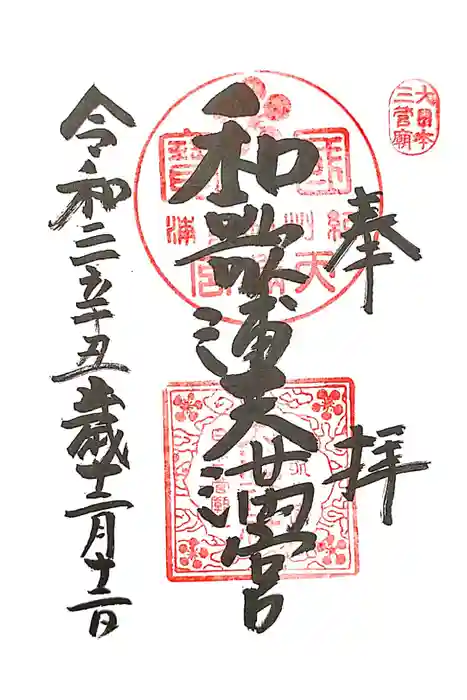 大日本
三菅廟
奉拝
和歌浦天満宮
令和三辛丑歳十二月十二日